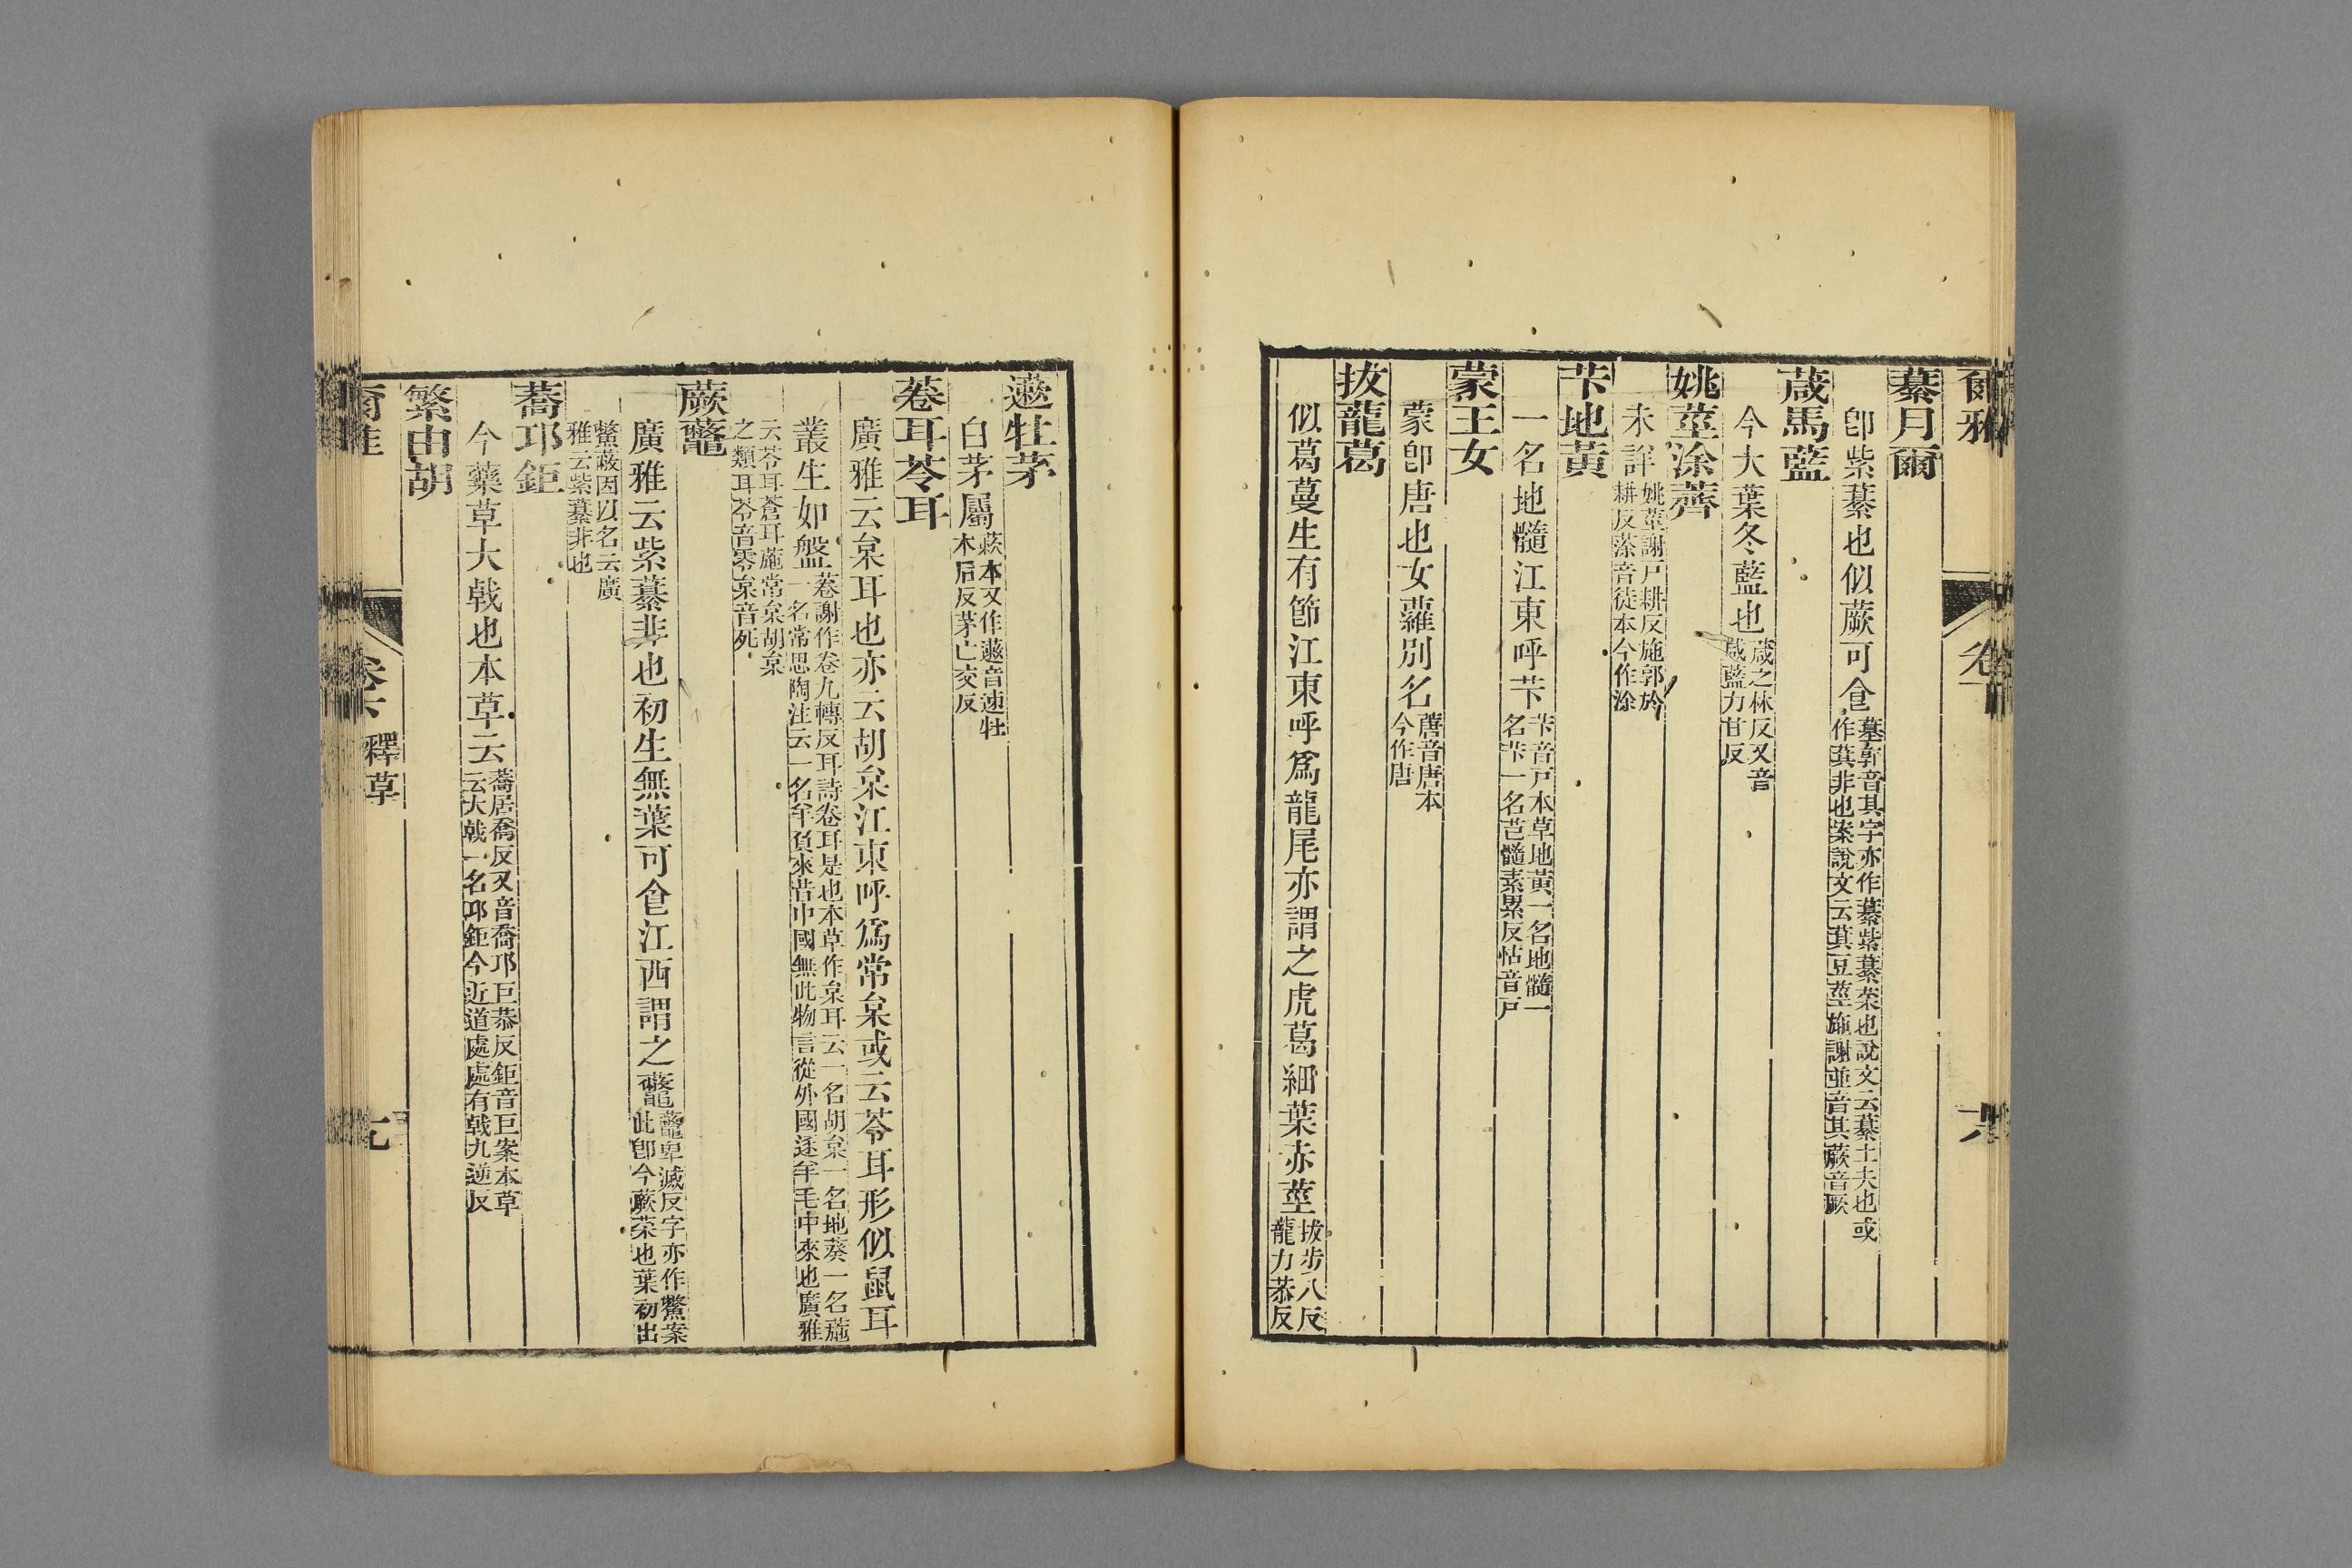 爾雅 卷下 六
藄月爾
卽紫藄也似蕨可食 藄郭音其字亦作藄紫藄菜也說文云藄土夫也或
作萁非也案說文云萁豆莖施謝並音其蕨音厥
葴馬藍
今大葉冬藍也 葴之林反又音
咸藍力甘反
姚莖涂薺
未詳 姚莖謝戶耕反施郭於
耕反蒤音徒本今作涂
芐地黃
一名地髓江東呼芐 芐音戶本草地黃一名地髓一
名芐一名芑髓素累反怙音戶
蒙王女
蒙卽唐也女蘿別名 蓎音唐本
今作唐
拔蘢葛
似葛蔓生有節江東呼爲龍尾亦謂之虎葛細葉赤莖 拔步八反
龍力恭反
遬牡茅
白茅屬 蔌本又作遬音速牡
木后反茅亡交反
菤耳苓耳
廣雅云枲耳也亦云胡枲江東呼爲常枲或云苓耳形似鼠耳
叢生如盤 菤謝作卷九轉反耳詩卷耳是也本草作枲耳云一名胡枲一名地葵一名葹
一名常思陶注云一名羊負來昔中國無此物言從外國逐羊毛中來也廣雅
云苓耳蒼耳葹常枲胡枲
之類耳苓音零枲音死
蕨虌
廣雅云紫藄非也初生無葉可食江西謂之虌 虌卑滅反字亦作鱉案
此卽今蕨菜也葉初出
鱉蔽因以名云廣
雅云紫藄非也
蕎邛鉅
今藥草大戟也本草云 蕎居喬反又音喬邛巨恭反鉅音巨案本草
云大戟一名邛鉅今近道處處有戟九逆反
繁由胡
爾雅 卷下 釋草 七